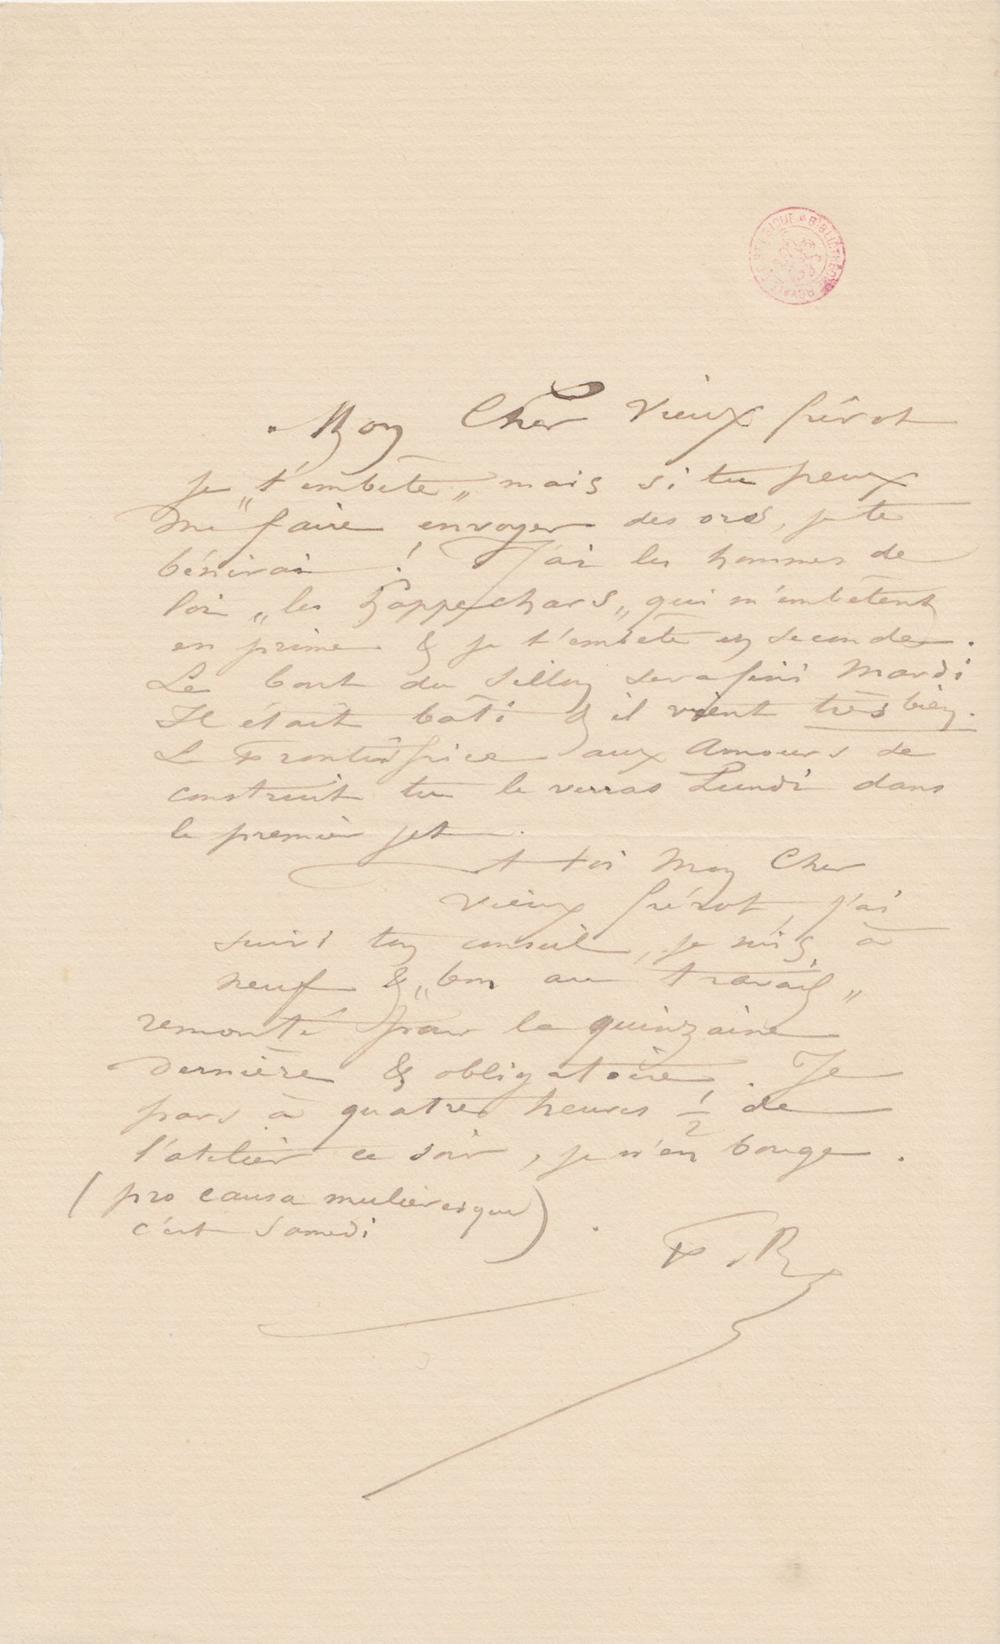 Mon Cher Vieux frérot
je "t'embête" mais si tu peux
me faire envoyer des ors, je te
bénirai ! J'ai les hommes de
loi "les happechars" qui m'embêtent
en prime & je t'embête en seconde.
Le bout du Sillon sera fini Mardi
Il était bâti & il vient très bien.
Le Frontispice aux Amours de
construit tu le verras Lundi dans
le premier jet.
A toi Mon Cher
Vieux frérot, j'ai
suivi ton conseil, je suis à
neuf & "bon au travail"
remonté pour la quinzaine
dernière & obligatoire. Je
pars à quatre heures 1/2 de
l'atelier ce soir, je n'en bouge.
(pro causa mulieresque)
c'est Samedi
F.R